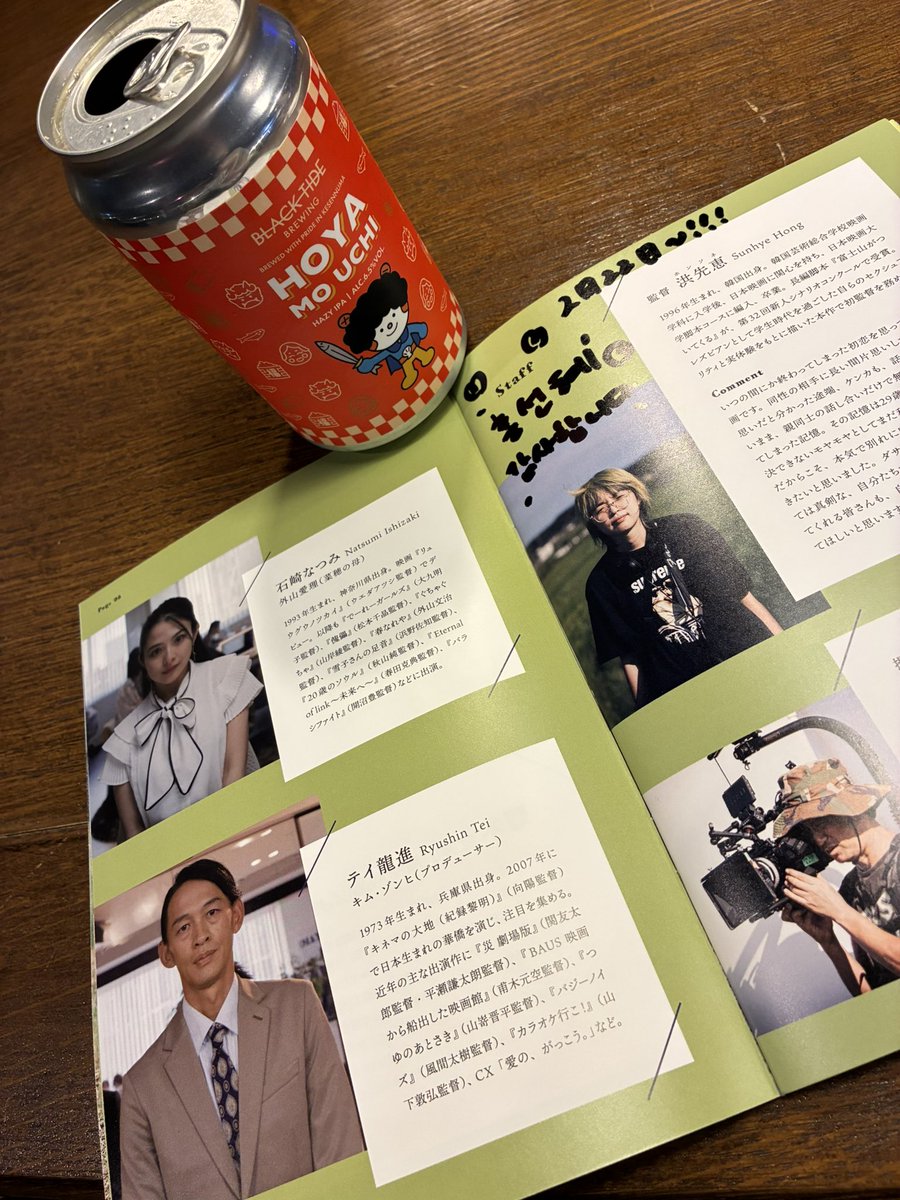 BLACK TIDE
BREWING
BREWED WITH PRIDE IN KESENNUMA
HOYA
MO UCHI
HAZY IPA | ALC.6.5%VOL.
Page 08
石崎なつみ Natsumi Ishizaki
外山愛理(菜穂の母)
1993年生まれ、神奈川県出身。映画『リュ
ウグウノツカイ』(ウエダアツシ監督)でデ
ビュー。以降も『でーれーガールズ』(大九明
子監督)、『傀儡』(松本千晶監督)、『ぐちゃぐ
ちゃ』(山岸綾監督)、『春なれや』(外山文治
監督)、『雪子さんの足音』(浜野佐知監督)、
『20歳のソウル』(秋山純監督)、『Eternal
of link〜未来へ〜』(春田克典監督)、『バラ
シファイト』(開沼豊監督)などに出演。
テイ龍進 Ryushin Tei
キム・ゾンヒ(プロデューサー)
1973年生まれ、兵庫県出身。2007年に
『キネマの大地(紀録黎明)』(向陽監督)
で日本生まれの華僑を演じ、注目を集める。
近年の主な出演作に『災 劇場版』(関友太
郎監督・平瀬謙太朗監督)、『BAUS 映画
から船出した映画館』(甫木元空監督)、『つ
ゆのあとさき』(山嵜晋平監督)、『バジーノイ
ズ』(風間太樹監督)、『カラオケ行こ!』(山
下敦弘監督)、CX「愛の、がっこう。」など。
Staff
2月22日〜!!!
홍선혜
감사합니다
ホン ソネ
監督 洪先恵 Sunhye Hong
1996年生まれ、韓国出身。韓国芸術総合学校映画
学科に入学後、日本映画に関心を持ち、日本映画大
学脚本コースに編入、卒業。長編脚本『富士山がつ
いてくる』が、第32回新人シナリオコンクールで受賞。
レズビアンとして学生時代を過ごした自らのセクシュ
リティと実体験をもとに描いた本作で初監督を務め
Comment
いつの間にか終わってしまった初恋を思っ
画です。同性の相手に長い間片思いし
思いだと分かった途端、ケンカも、話
いまま、親同士の話し合いだけで解
てしまった記憶。その記憶は29歳
決できないモヤモヤとしてまだ
だからこそ、本気で別れに
きたいと思いました。ダサ
ては真剣な、自分たち
てくれる皆さんも、
てほしいと思います
supreme